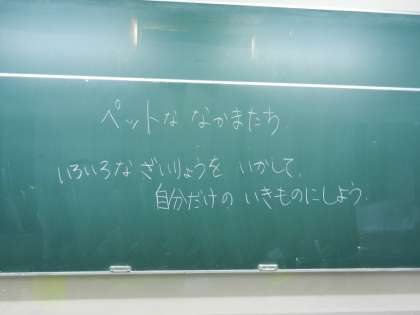 ペットな なかまたち
いろいろな ざいりょうを いかして、
自分だけの いきものにしよう.